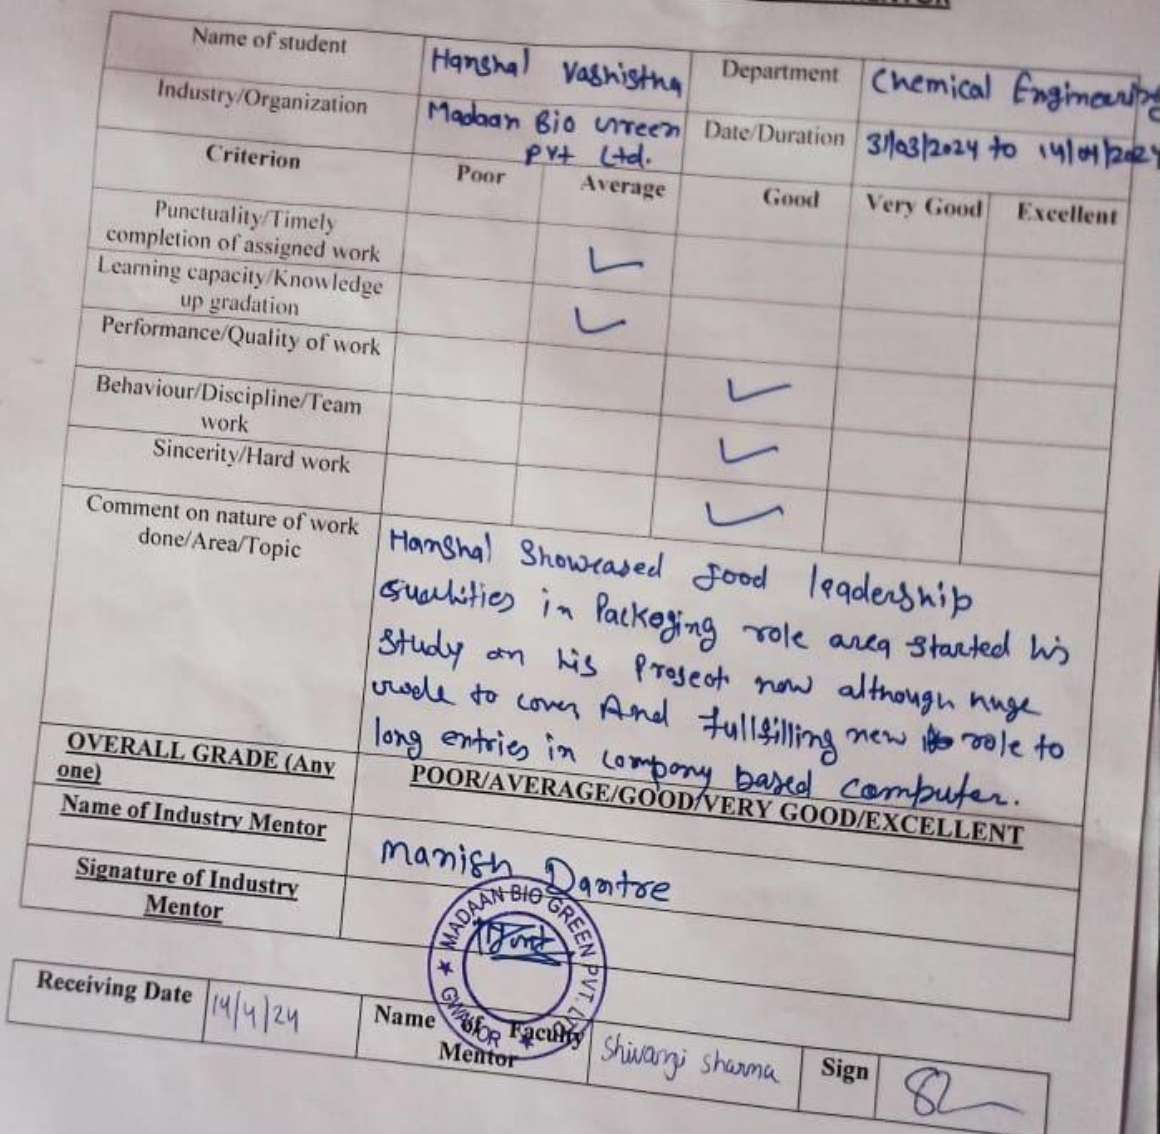 Name of student Hanshal Vashistha Department Chemical Engineering
Industry/Organization Madaan Bio Green Pvt Ltd. Date/Duration 31/03/2024 to 14/04/2024
Criterion Poor Average Good Very Good Excellent
Punctuality/Timely
completion of assigned work ✓
Learning capacity/Knowledge
up gradation ✓
Performance/Quality of work ✓
Behaviour/Discipline/Team
work ✓
Sincerity/Hard work ✓
Comment on nature of work
done/Area/Topic
Hanshal Showcased good leadership
qualities in Packaging role area started his
study on his Project now although huge
to cover And fullfilling new role to
long entries in company based computer.
OVERALL GRADE (Any
one)
POOR/AVERAGE/GOOD/VERY GOOD/EXCELLENT
Name of Industry Mentor Manish
Signature of Industry
Mentor
MADAAN BIO GREEN PVT. LTD.
GWALIOR
Receiving Date 14/4/24 Name of Faculty
Mentor Shivangi Sharma Sign